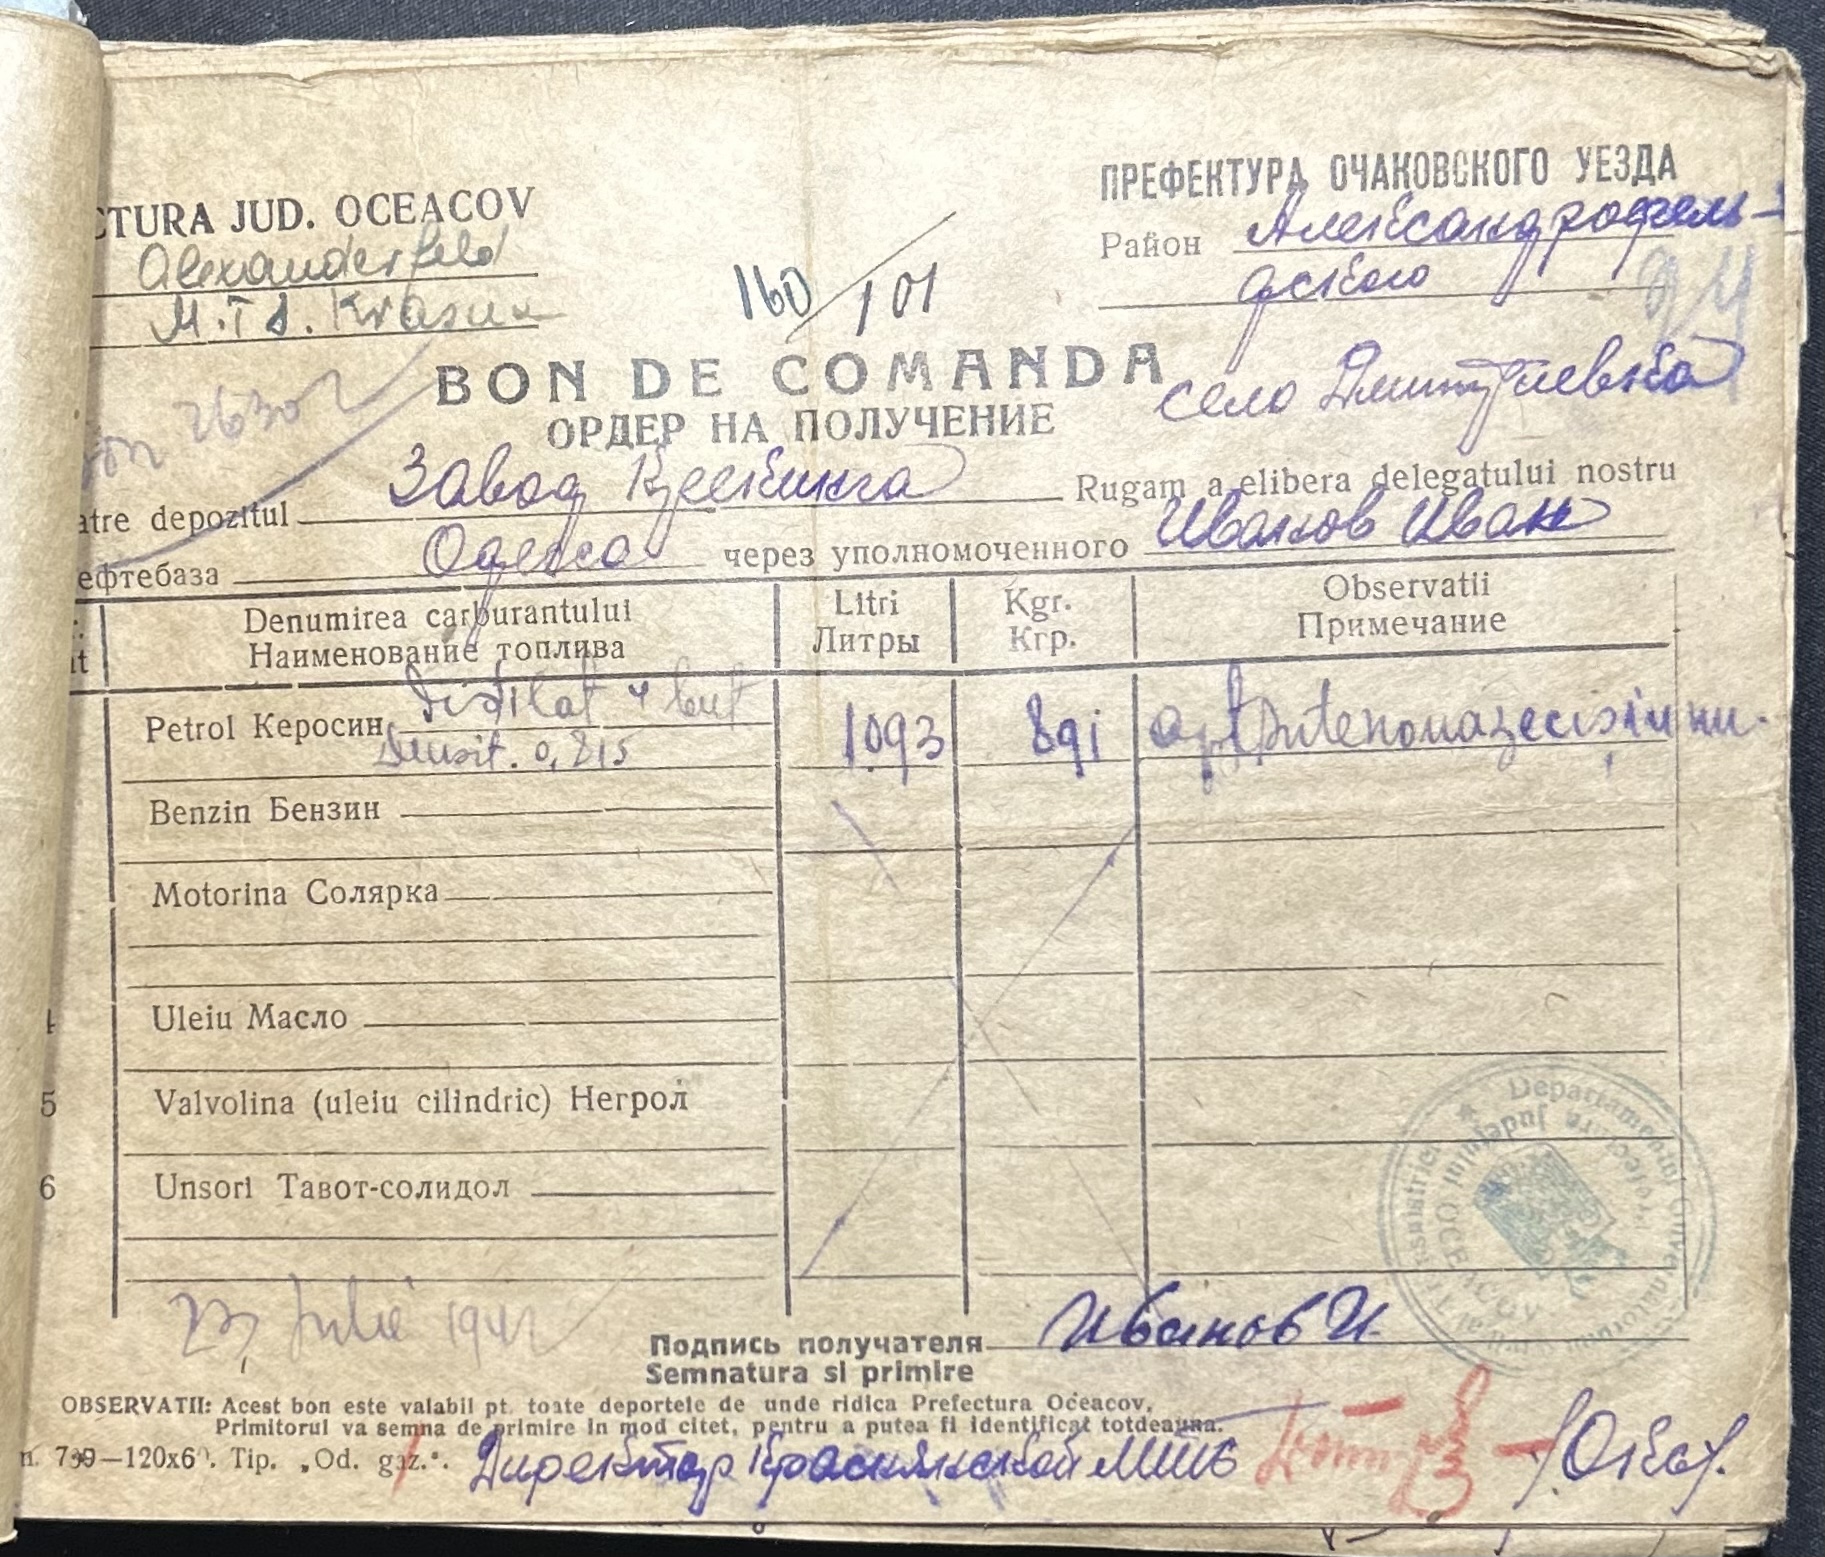 CTURA JUD. OCEACOV
ПРЕФЕКТУРА ОЧАКОВСКОГО УЕЗДА
Alexanderfeld
Район Александрофель-
дского
M.T.S. Krasin
160/101
BON DE COMANDA
село Дмитриевка
ОРДЕР НА ПОЛУЧЕНИЕ
2630
atre depozitul Завод Rugam a elibera delegatului nostru
ефтебаза Одесса через уполномоченного Иванов Иван
Denumirea carburantului Litri Kgr. Observatii
Наименование топлива Литры Кгр. Примечание
Petrol Керосин Distilat 1093 891 optsutenouazecisiunu.
Densit. 0,815
Benzin Бензин
Motorina Солярка
4 Uleiu Масло
5 Valvolina (uleiu cilindric) Негрол
6 Unsori Тавот-солидол
Departamentul Guvernatorul Transnistriei
Prefectura Judeţului OCEACOV
23 Iulie 1942
Подпись получателя Иванов И.
Semnatura si primire
OBSERVATII: Acest bon este valabil pt. toate deportele de unde ridica Prefectura Oceacov.
Primitorul va semna de primire in mod citet, pentru a putea fi identificat totdeauna.
Tip. „Od. gaz.".
Директор Краснянской МТС